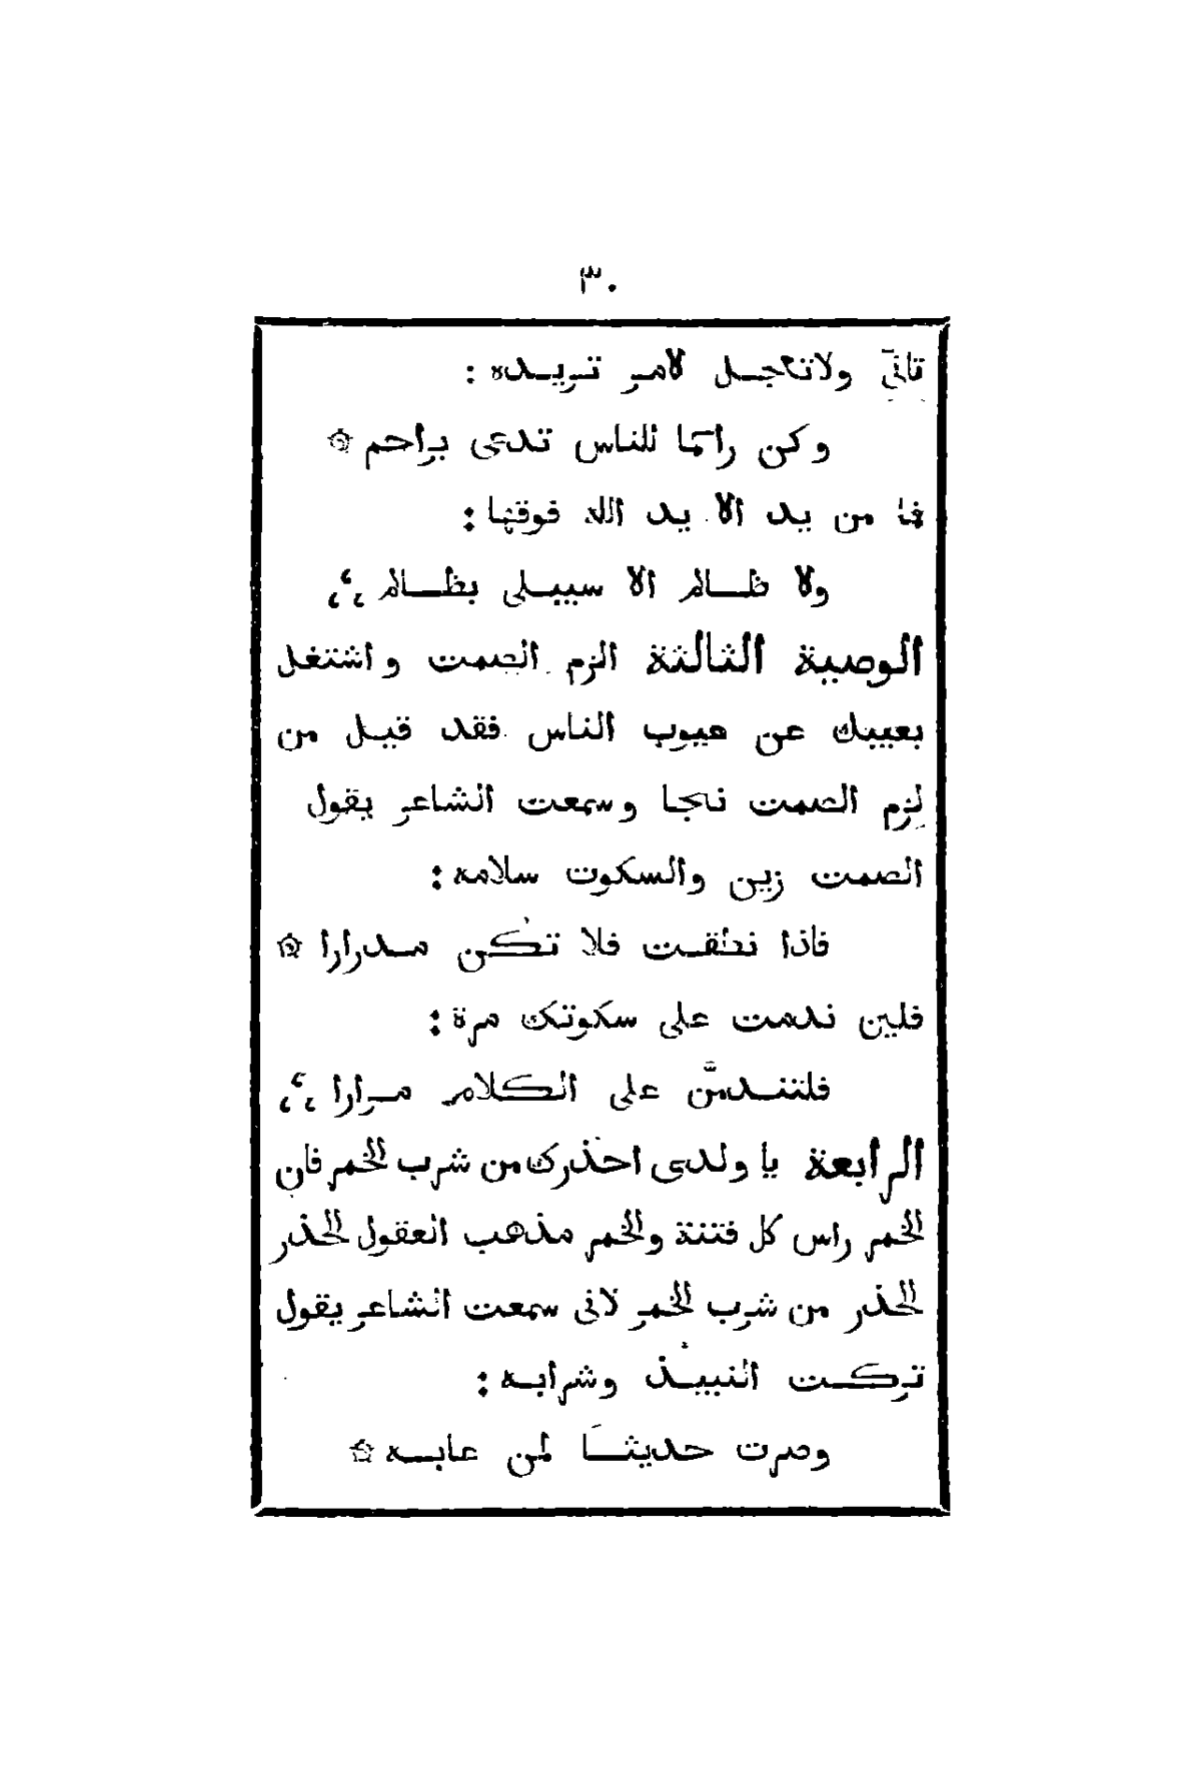 ٣٠
تانّ ولاتعجل لامر تريده :
وكن راحما للناس تدعى براحم
فما من يد الا يد الله فوقها :
ولا ظالم الا سيبلى بظالم
الوصية الثالثة الزم الصمت واشتغل
بعيبك عن عيوب الناس فقد قيل من
لزم الصمت نجا وسمعت الشاعر يقول
الصمت زين والسكوت سلامه :
فاذا نطقت فلا تكن مدرارا
فلين ندمت على سكوتك مرة :
فلتندمنّ على الكلام مرارا
الرابعة يا ولدى احذرك من شرب الخمر فان
الخمر راس كل فتنة والخمر مذهب العقول الحذر
الحذر من شرب الخمر لانى سمعت الشاعر يقول
تركت النبيذ وشرابه :
وصرت حديثا لمن عابه